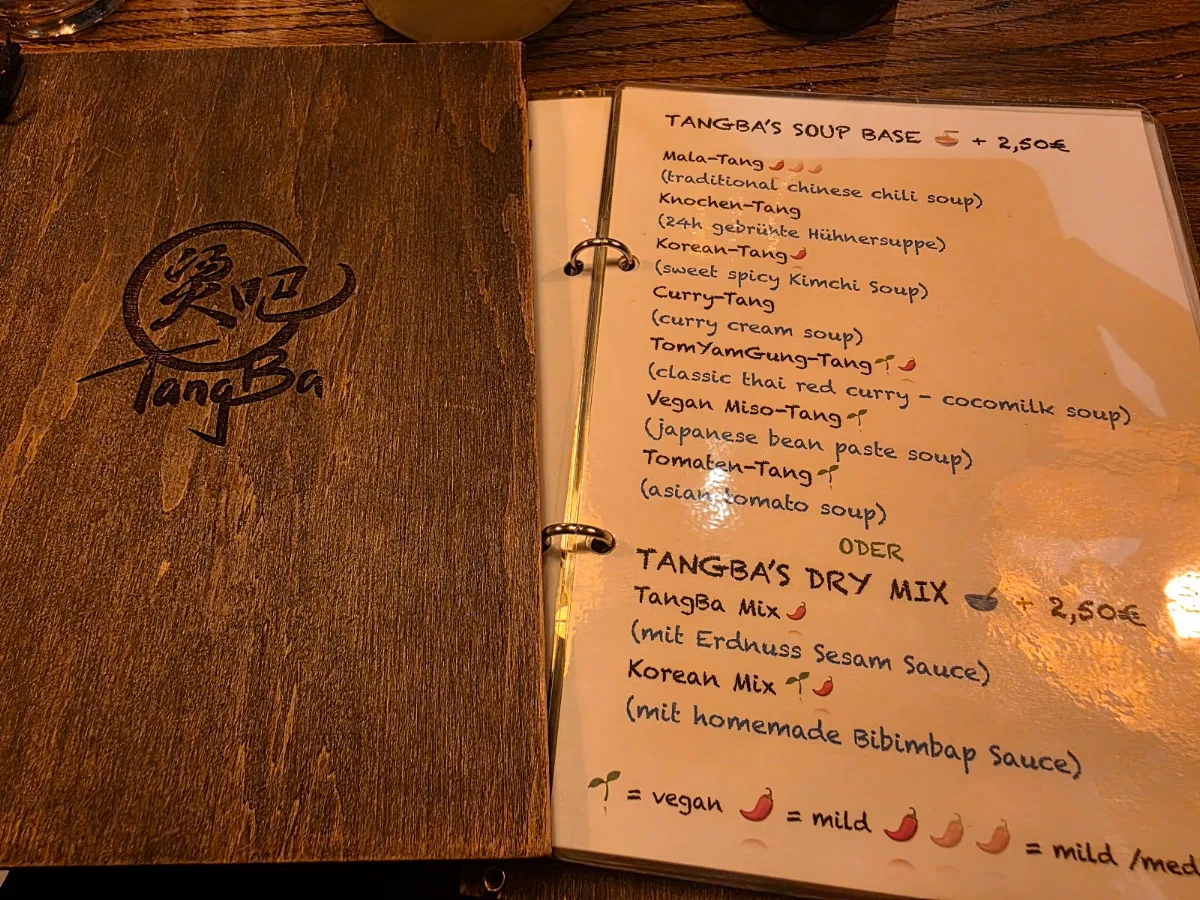 烫吧
TangBa
TANGBA'S SOUP BASE + 2,50€
Mala-Tang
(traditional chinese chili soup)
Knochen-Tang
(24h gebrühte Hühnersuppe)
Korean-Tang
(sweet spicy Kimchi Soup)
Curry-Tang
(curry cream soup)
TomYamGung-Tang
(classic thai red curry - cocomilk soup)
Vegan Miso-Tang
(japanese bean paste soup)
Tomaten-Tang
(asian tomato soup)
ODER
TANGBA'S DRY MIX + 2,50€
TangBa Mix
(mit Erdnuss Sesam Sauce)
Korean Mix
(mit homemade Bibimbap Sauce)
= vegan = mild = mild /med